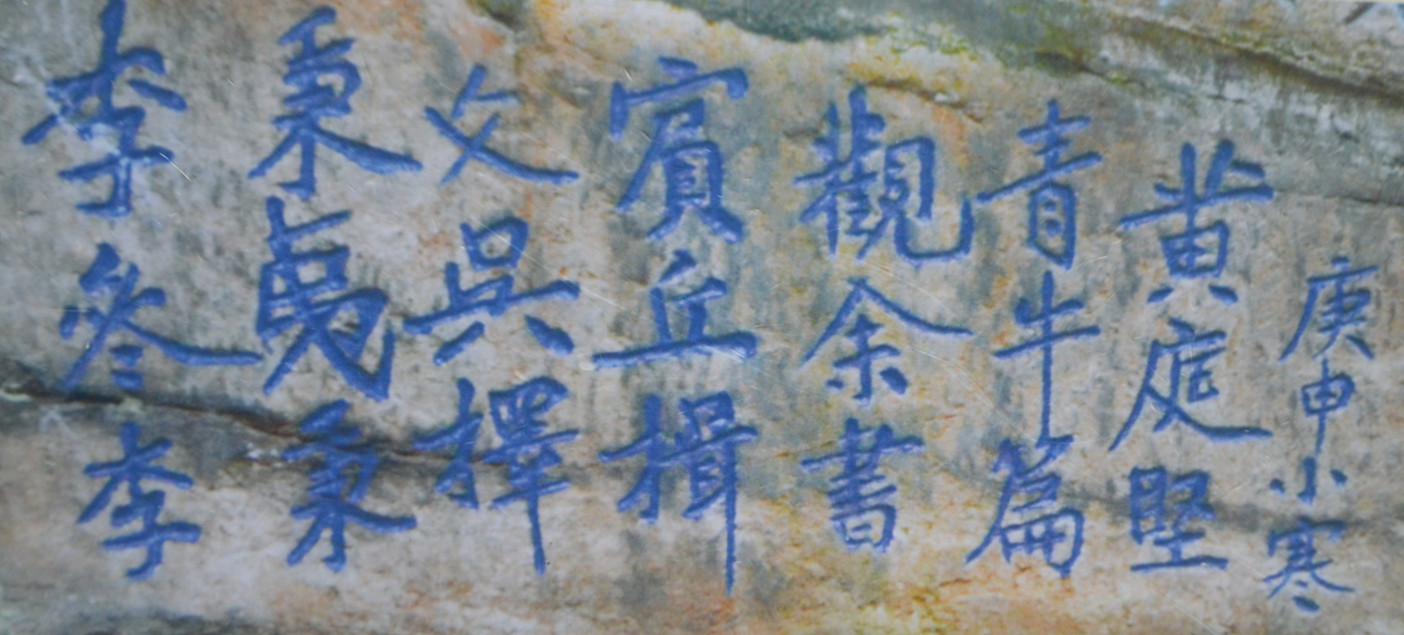 李參李
秉彝秉
文吳擇
賓丘揖
觀余書
青牛篇
黃庭堅
庚申小寒